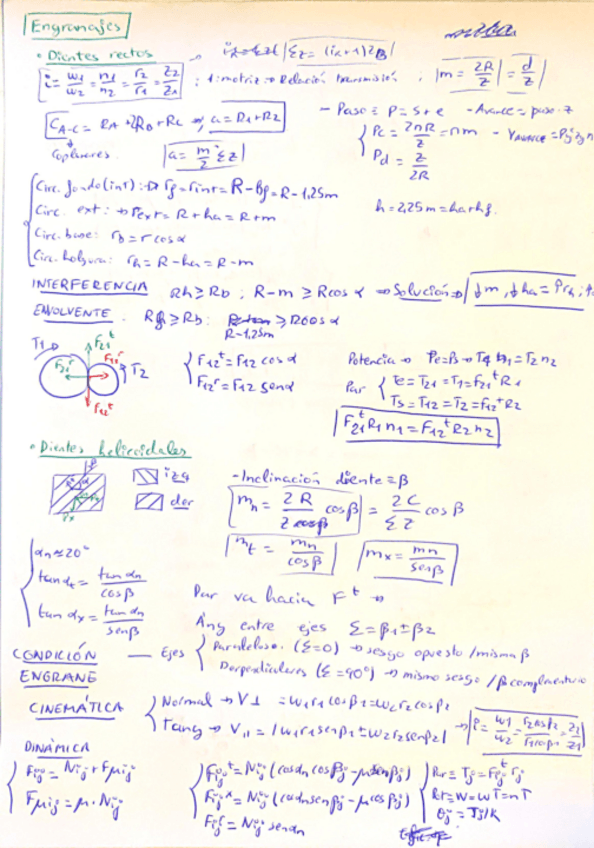 Engranajes
• Dientes rectos
i = w1/w2 = n1/n2 = r2/r1 = z2/z1 ; 1:motriz → Relación transmisión ; |m = 2R/z| = d/z|
C A-C = RA + 2RB + RC → a = R1+R2
Coplanares |a = m/2 Σz|
- Paso ≡ P = s+e - Avance = paso·z
Pc = 2πR/z = πm
Pd = z/2R
Circ. fondo (int): → rf = rint = R - Bf = R - 1,25m
Circ. ext: → rext = R + ha = R + m
h = 2,25m = ha+hf.
Circ. base: rb = r cos α
Circ. holgura: rh = R - ha = R - m
INTERFERENCIA Rh ≥ Rb ; R - m ≥ R cos α ⇒ Solución ⇒ ↓m, ↓ha =
ENVOLVENTE. Rf ≥ Rb: R-1,25m ≥ R cos α
T1 F21 t F21 r F12 r T2 F12 t
F12 t = F12 cos α
F12 r = F12 sen α
Potencia → Pe = Ps → T1 n1 = T2 n2
Par Te = T21 = T1 = F21 t R1
Ts = T12 = T2 = F12 t R2
F21 t R1 n1 = F12 t R2 n2
• Dientes helicoidales
izq
der
- Inclinación diente = β
mn = 2R/z cos β = 2C/Σz cos β
mt = mn/cos β mx = mn/sen β
αn ≈ 20°
tan αt = tan αn/cos β
tan αx = tan αn/sen β
Par va hacia F t →
Áng entre ejes Σ = β1 ± β2
CONDICIÓN ENGRANE — Ejes Paralelos. (Σ=0) → sesgo opuesto / misma β
Perpendiculares (Σ=90°) → mismo sesgo / β complementario
CINEMÁTICA Normal → V⊥ = w1 r1 cos β1 = w2 r2 cos β2
Tang → V|| = |w1 r1 sen β1 ± w2 r2 sen β2| → i = w1/w2 = r2 cos β2/r1 cos β1 = z2/z1
DINÁMICA
Fij = Nij + Fμij
Fμij = μ · Nij
Fij t = Nij (cos αn cos βj - μ sen βj)
Fij x = Nij (cos αn sen βj - μ cos βj)
Fij r = Nij sen αn